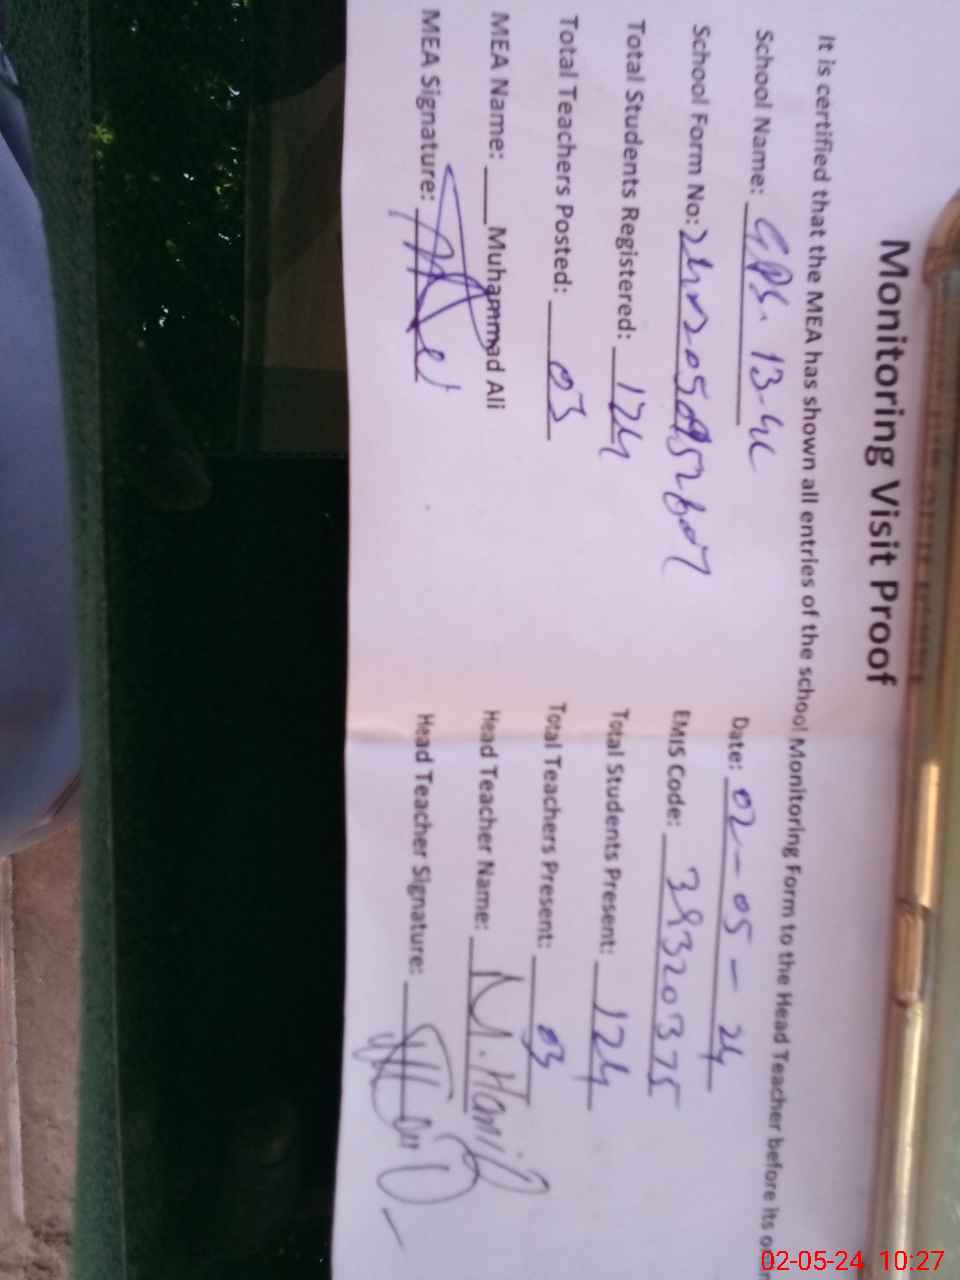 Monitoring Visit Proof
It is certified that the MEA has shown all entries of the school Monitoring Form to the Head Teacher before its
School Name: GPS. 13-4L Date: 02-05-24
School Form No: EMIS Code: 39320375
Total Students Registered: 124 Total Students Present: 124
Total Teachers Posted: 03 Total Teachers Present: 03
MEA Name: Muhammad Ali Head Teacher Name: M. Hanif
MEA Signature: Head Teacher Signature:
02-05-24 10:27